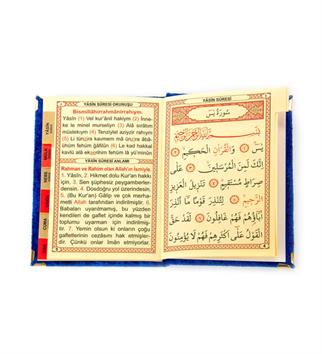 YÂSİN SÛRESİ OKUNUŞU
Bismillâhirrahmânirrahıym.
Yâsîn (1) Vel kur'ânil hakiym (2) İnne-
ke le minel murseliyn (3) Alâ sırâtım
müstekıym (4) Tenziylel aziyzir rahıym
(5) Li tünzira kavmem mâ ünzira âbâ-
ühüm fehüm ğâfilûn (6) Le kad hakkal
kavlü alâ ekserihim fehüm lâ yü'minûn
YÂSİN SÛRESİ ANLAMI
Rahman ve Rahim olan Allah'ın ismiyle.
1. Yâsin. 2. Hikmet dolu Kur'an hakkı
için. 3. Sen şüphesiz peygamberler-
densin. 4. Dosdoğru yol üzerindesin.
5. (Bu Kur'an) Gâlip ve çok merha-
metli Allah tarafından indirilmiştir. 6.
Babaları uyarılmamış, bu yüzden
kendileri de gaflet içinde kalmış bir
toplumu uyarman için indirilmiş-
tir. 7. Yemin olsun ki onların çoğu
gafletlerinin cezasını hak etmişler-
dir. Çünkü onlar îman etmiyorlar.
YÂSİN
MÜLK
NEBE
CUMA
YÂSİN SÛRESİ
سُورَةُ يٰسٓ
بِسْمِ اللّٰهِ الرَّحْمٰنِ الرَّحِيمِ
يٰسٓ ۝ وَالْقُرْاٰنِ الْحَكِيمِ ۝
اِنَّكَ لَمِنَ الْمُرْسَلِينَ ۝ عَلٰى
صِرَاطٍ مُسْتَقِيمٍ ۝ تَنْزِيلَ الْعَزِيزِ
الرَّحِيمِ ۝ لِتُنْذِرَ قَوْمًا مَٓا اُنْذِرَ
اٰبَٓاؤُ۬هُمْ فَهُمْ غَافِلُونَ ۝ لَقَدْ حَقَّ
الْقَوْلُ عَلٰٓى اَكْثَرِهِمْ فَهُمْ لَا يُؤْمِنُونَ